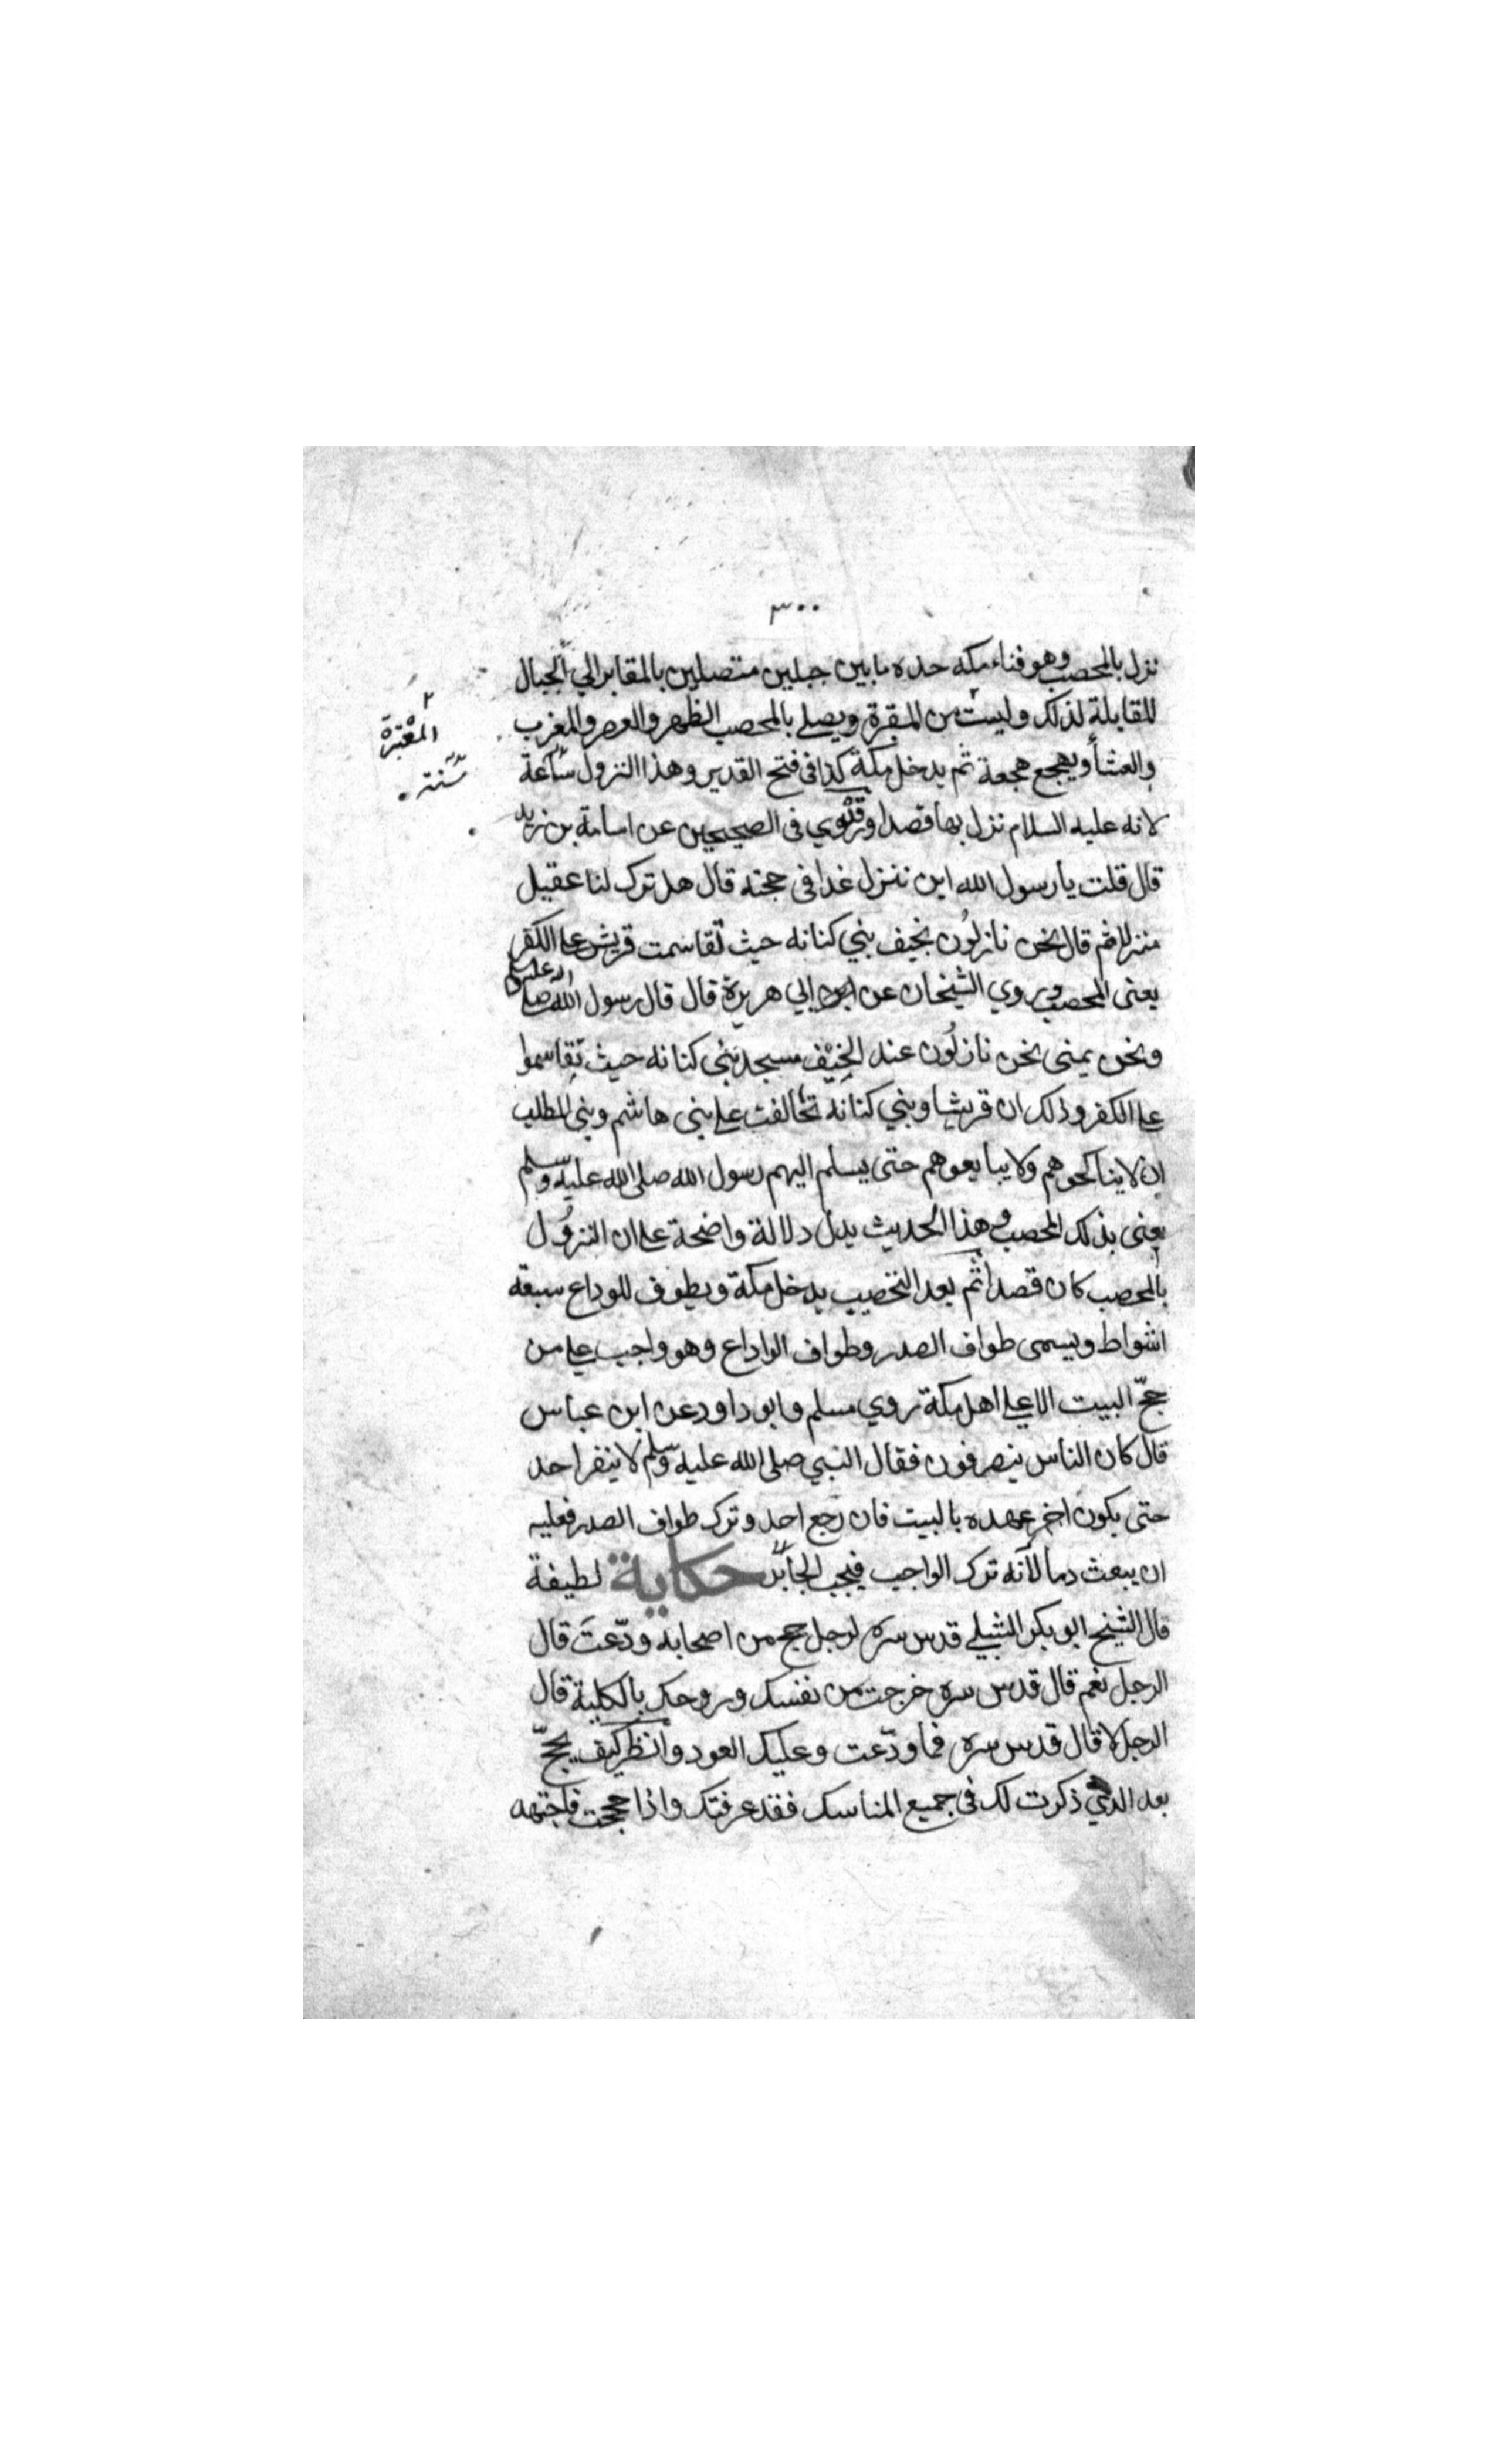 ٣٠٠
نزل بالمحصب وهو فناء مكه حده ما بين جبلين متصلين بالمقابر الي الجبال
للمقابلة لذلك وليست من المقبرة ويصلي بالمحصب الظهر والعصر والمغرب
المقبرة
والعشأ ويهجع هجعة ثم يدخل مكة كذا في فتح القدير وهذا النزول
سنة
لانه عليه السلام نزل بها قصدا وروي في الصحيحين عن اسامة بن زيد
قال قلت يا رسول الله اين ننزل غدا في حجته قال هل ترك لنا عقيل
منزلا ثم قال نحن نازلون بخيف بني كنانه حيث تقاسمت قريش علي الكفر
يعني المحصب وروي الشيخان عن ابي هريرة قال قال رسول الله صلي الله عليه وسلم
ونحن بمنى نحن نازلون عند الخيف مسجد بني كنانه حيث تقاسموا
علي الكفر وذلك ان قريشا وبني كنانة تخالفت علي بني هاشم وبني المطلب
ان لا يناكحوهم ولا يبايعوهم حتى يسلم اليهم رسول الله صلى الله عليه وسلم
يعني بذلك المحصب وهذا الحديث يدل دلالة واضحة علي ان النزول
بالمحصب كان قصدا ثم بعد التحصيب يدخل مكة ويطوف للوداع سبعة
اشواط ويسمى طواف الصدر وطواف الواداع وهو واجب علي من
حجّ البيت الا علي اهل مكة روي مسلم وابو داود عن ابن عباس
قال كان الناس ينصرفون فقال النبي صلى الله عليه وسلم لا ينفر احد
حتى يكون اخر عهده بالبيت فان رجع احد وترك طواف الصدر فعليه
ان يبعث دما لأنه ترك الواجب فيجب الجابر حكاية لطيفة
قال الشيخ ابو بكر الشبلي قدس سره لرجل حج من اصحابه ودّعت قال
الرجل نعم قال قدس سره خرجت من نفسك وروحك بالكلية قال
الرجل لا قال قدس سره فما ودّعت وعليك العود وانظر كيف يحجّ
بعد الذي ذكرت لك في جميع المناسك فقد عرفتك واذا حججت فاجتهد